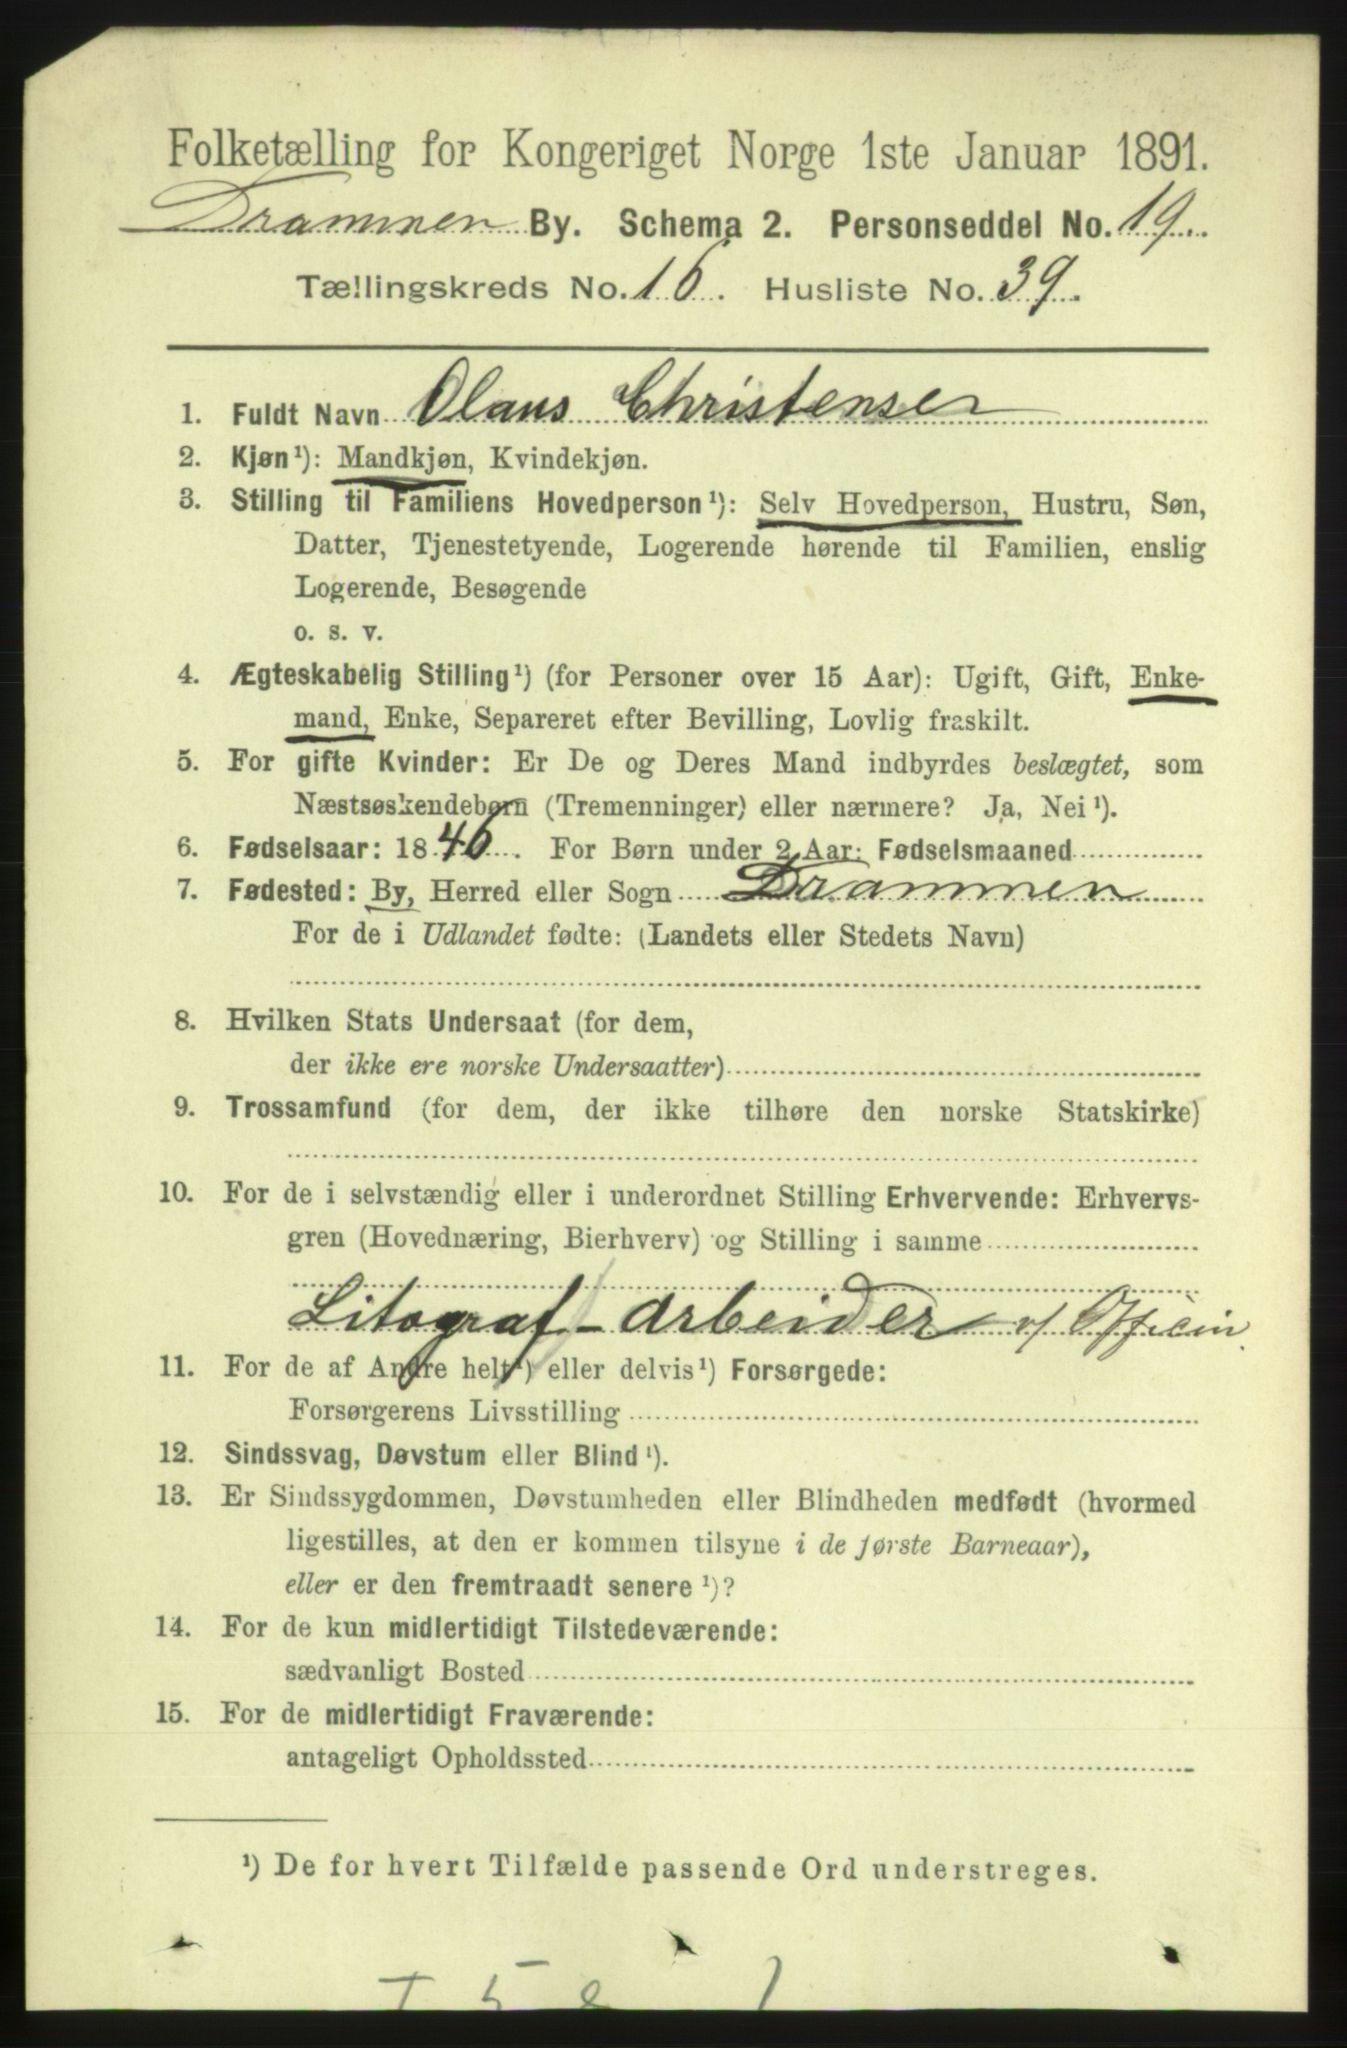 Folketælling for Kongeriget Norge 1ste Januar 1891.
Drammen By. Schema 2. Personseddel No. 19.
Tællingskreds No. 16. Husliste No. 39.
1. Fuldt Navn Olaus Christensen
2. Kjøn¹): Mandkjøn, Kvindekjøn.
3. Stilling til Familiens Hovedperson¹): Selv Hovedperson, Hustru, Søn,
Datter, Tjenestetyende, Logerende hørende til Familien, enslig
Logerende, Besøgende
o. s. v.
4. Ægteskabelig Stilling¹) (for Personer over 15 Aar): Ugift, Gift, Enke-
mand, Enke, Separeret efter Bevilling, Lovlig fraskilt.
5. For gifte Kvinder: Er De og Deres Mand indbyrdes beslægtet, som
Næstsøskendebørn (Tremenninger) eller nærmere? Ja, Nei¹).
6. Fødselsaar: 1846. For Børn under 2 Aar: Fødselsmaaned
7. Fødested: By, Herred eller Sogn Drammen
For de i Udlandet fødte: (Landets eller Stedets Navn)
8. Hvilken Stats Undersaat (for dem,
der ikke ere norske Undersaatter)
9. Trossamfund (for dem, der ikke tilhøre den norske Statskirke)
10. For de i selvstændig eller i underordnet Stilling Erhvervende: Erhvervs-
gren (Hovednæring, Bierhverv) og Stilling i samme
Litograf-arbeider v/ Officin.
11. For de af Andre helt¹) eller delvis¹) Forsørgede:
Forsørgerens Livsstilling
12. Sindssvag, Døvstum eller Blind¹).
13. Er Sindssygdommen, Døvstumheden eller Blindheden medfødt (hvormed
ligestilles, at den er kommen tilsyne i de første Barneaar),
eller er den fremtraadt senere¹)?
14. For de kun midlertidigt Tilstedeværende:
sædvanligt Bosted
15. For de midlertidigt Fraværende:
antageligt Opholdssted
¹) De for hvert Tilfælde passende Ord understreges.